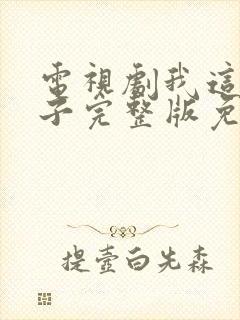 電視劇我這
子完整版免
提壺白先森